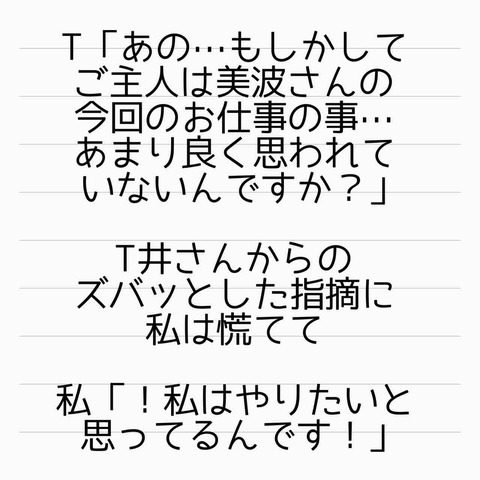 T「あの…もしかして
ご主人は美波さんの
今回のお仕事の事…
あまり良く思われて
いないんですか？」
T井さんからの
ズバッとした指摘に
私は慌てて
私「！私はやりたいと
思ってるんです！」